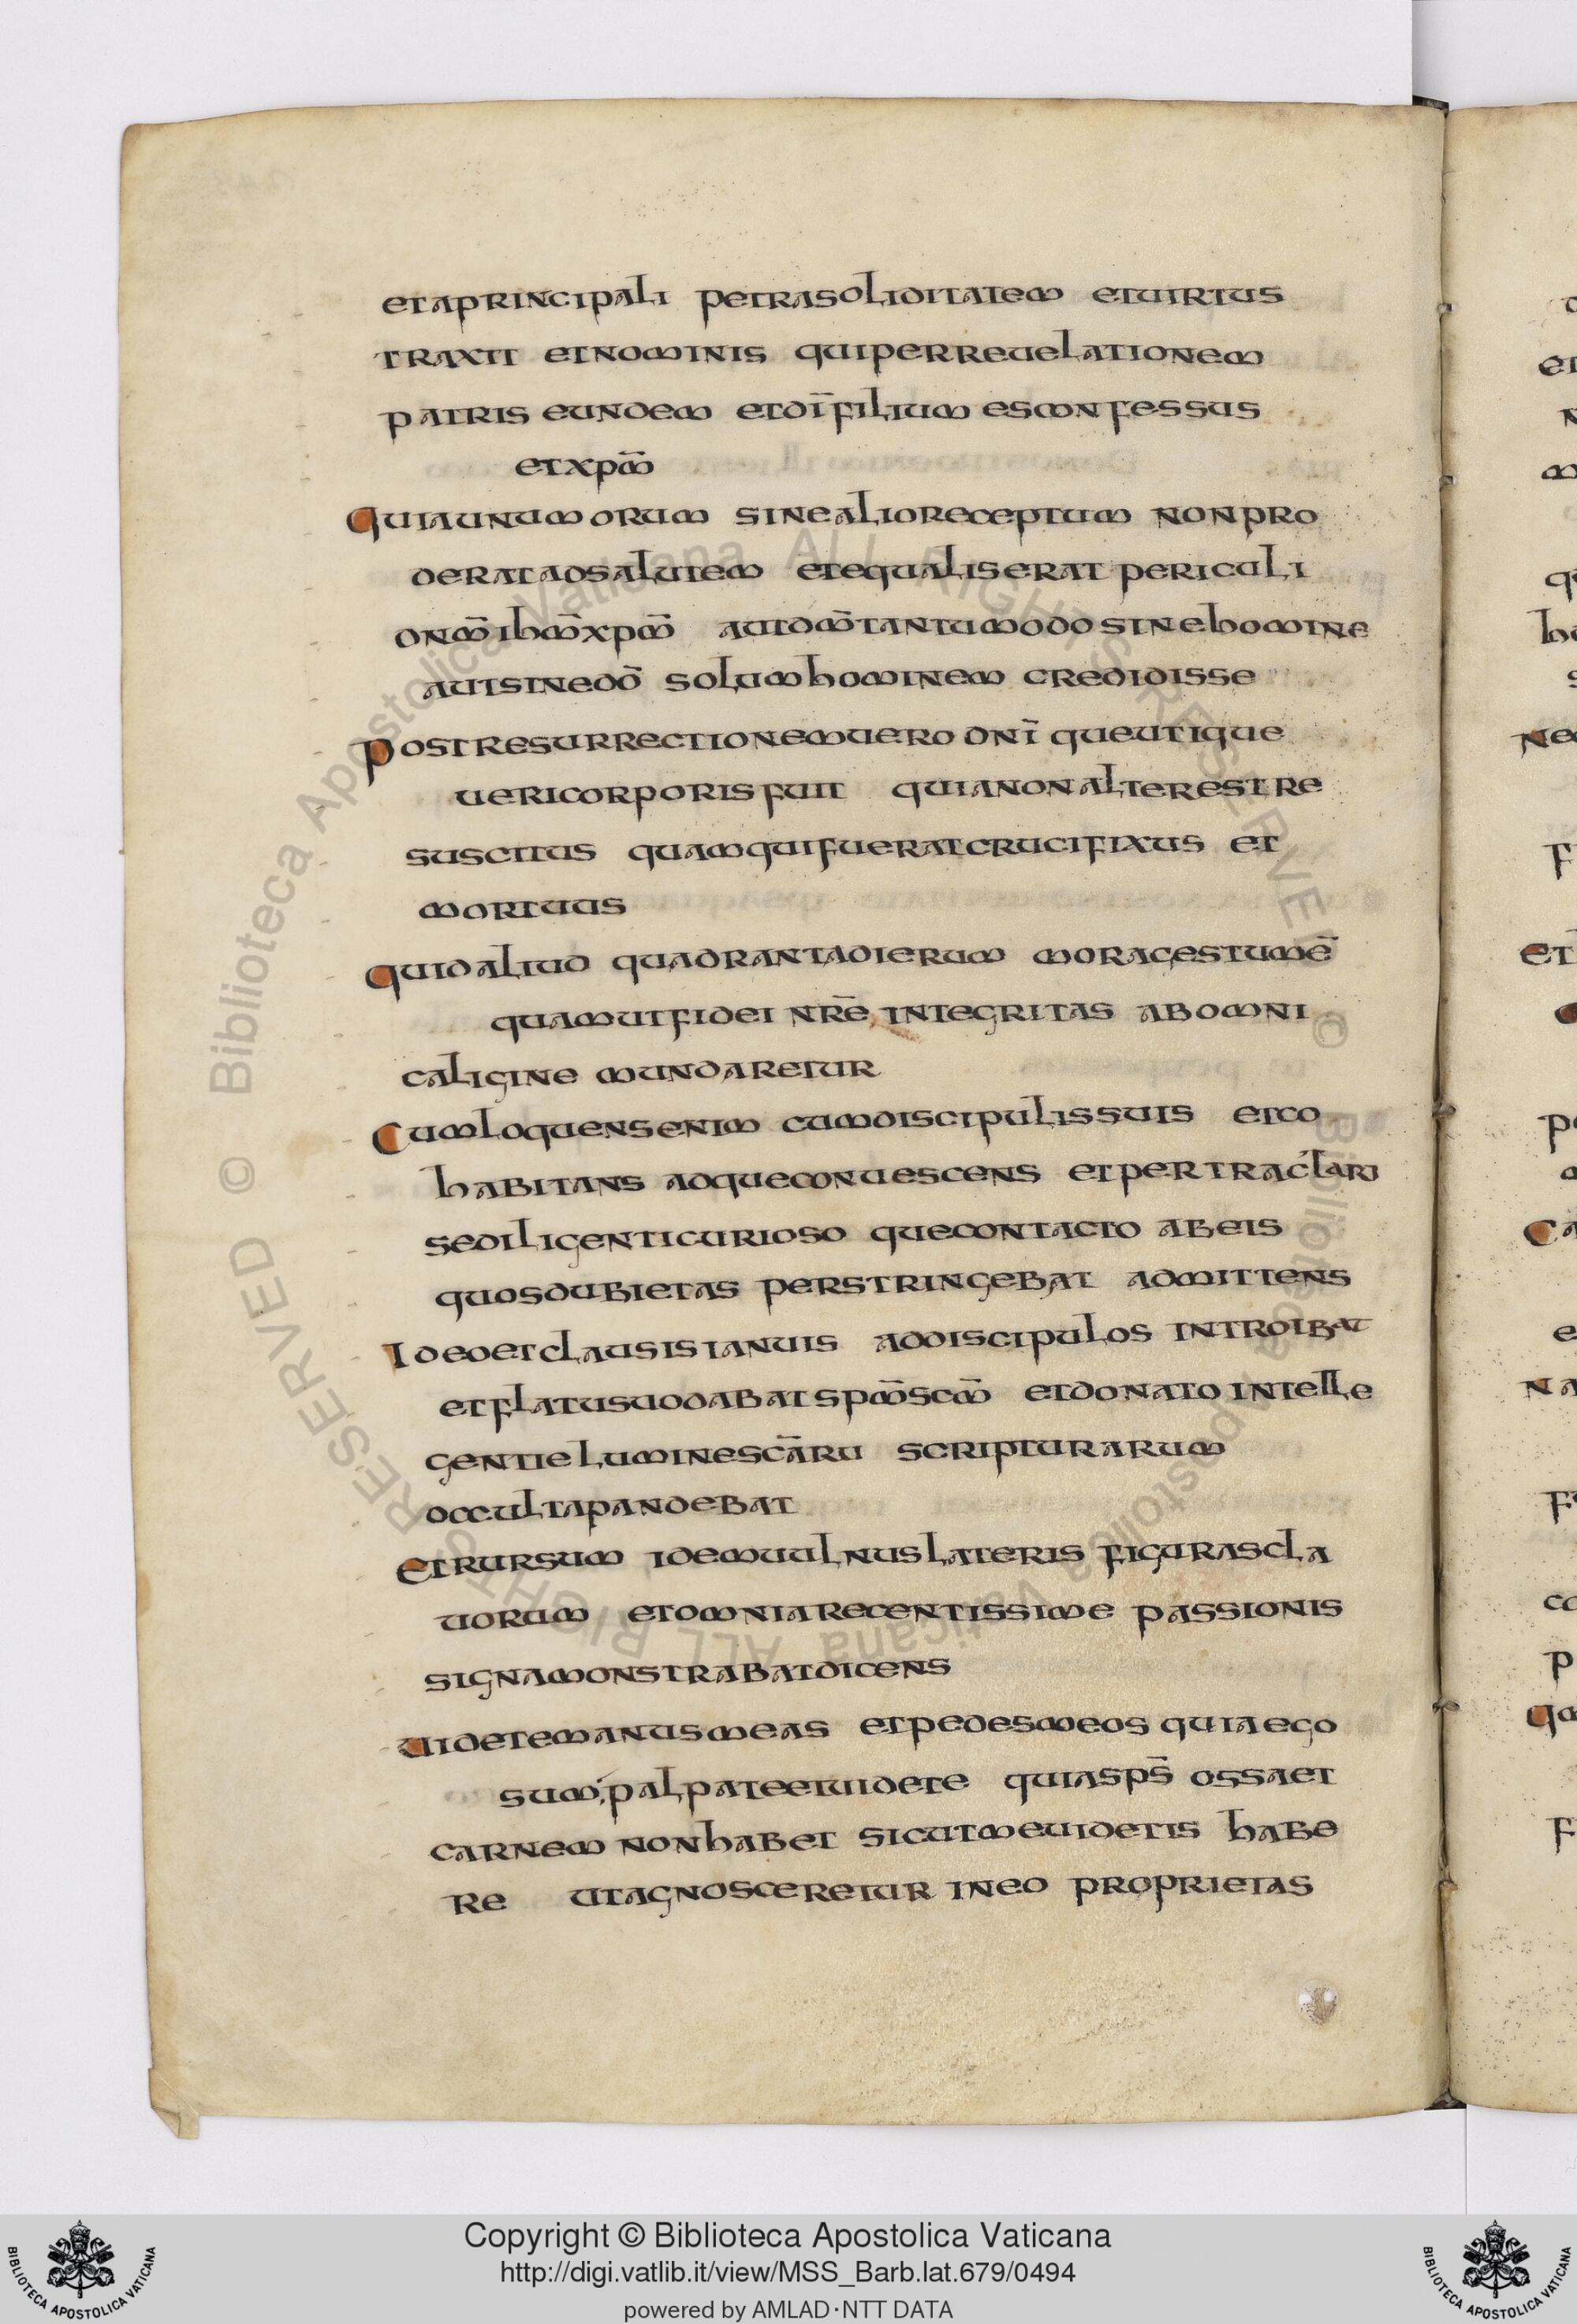 etaprincipali petrasoliditatem etuirtus
traxit etnominis quiperreuelationem
patris eundem etdīfilium esconfessus
etxpm̄
Quiaunumorum sinealioreceptum nonpro
deratadsalutem etequaliserat periculi
dnm̄ihm̄xpm̄ autdm̄tantummodosinehomine
autsinedō solumhominem credidisse
Postresurrectionemuero dnī queutique
uericorporisfuit quianonalterestre
suscitus quamquifueratcrucifixus et
mortuus
Quidaliud quadrantadierum moragestumē
quamutfidei nrē integritas abomni
caligine mundaretur
Cumloquensenim cumdiscipulissuis etco
habitans adqueconuescens etpertractari
sediligenticurioso quecontacto abeis
quosdubietas perstringebat admittens
Ideoetclausisianuis addiscipulos introibat
etflatusuodabatspm̄scm̄ etdonatointelle
gentieluminescāru scripturarum
occultapandebat
Etrursum idemuulnuslateris figurascla
uorum etomniarecentissime passionis
signamonstrabatdicens
Uidetemanusmeas etpedesmeos quiaego
sum; palpateetuidete quiasps̄ ossaet
carnem nonhabet sicutmeuidetis habe
re utagnosceretur ineo proprietas
Copyright © Biblioteca Apostolica Vaticana
http://digi.vatlib.it/view/MSS_Barb.lat.679/0494
powered by AMLAD·NTT DATA